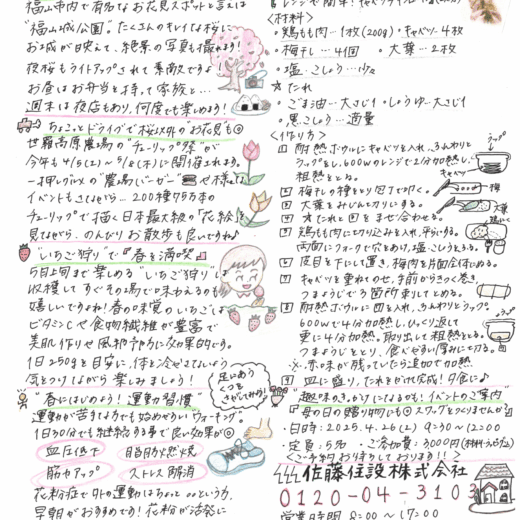 福山市内で有名なお花見スポットと言えば
"福山城公園"。たくさんのキレイな桜に
お城が映えて、絶景の写真も撮れます!
夜桜もライトアップされて素敵ですよ!
お昼はお弁当を持って家族と…
週末は夜店もあり、何度でも楽しめます!
ちょこっとドライブで桜以外の"お花見"も◎
世羅高原農場の"チューリップ祭"が
今年も4/5(土)〜5/8(木)に開催されます。
一押しグルメの"農場バーガー"や様々な
イベントもさながら…200種75万本の
チューリップで描く日本最大級の「花絵」を
見ながら、のんびりお散歩も良いですね♪
"いちご狩り"で『春を満喫』
5月上旬まで楽しめる"いちご狩り"は
収穫してすぐその場で味わえるのが
嬉しいですよね!春の味覚のいちごは
ビタミンCや食物繊維が豊富で
美肌作りや風邪予防に効果的です。
1日250gを目安に、体を冷やさないよう
気をつけながら楽しみましょう!
"春にはじめよう!運動習慣"
足にあう
くつを
さがしてみよう!
運動が苦手な方でも始めやすいウォーキング。
1日30分でも継続する事で良い効果が◎
血圧低下 脂肪燃焼
筋力アップ ストレス解消
花粉症で外の運動はちょっと…という方、
早朝がおすすめです!花粉が活発に
<材料>
・鶏もも肉…1枚(200g)・キャベツ…4枚
・梅干し…4個 ・大葉…2枚
・塩こしょう…少々
☆たれ
・ごま油…大さじ1・しょうゆ…大さじ1
・黒こしょう…適量
<作り方>
1 耐熱ボウルにキャベツを入れ、ふんわりと
ラップをし、600wのレンジで2分加熱し、
粗熱をとる。
ラップ
キャベツ
2 梅干しの種をとり包丁で叩く。
梅
3 大葉をみじん切りにする。
4 ☆たれと3をまぜ合わせる。
大葉
5 鶏もも肉に切り込みを入れ、平らにする。
両面にフォークで穴をあけ、塩こしょうをふる。
6 皮目を下にして置き、梅肉を片面全体にぬる。
7 キャベツを重ねてのせ、手前からきつく巻き、
つまようじで3箇所刺してとめる。
8 耐熱ボウルに7を入れ、ふんわりとラップ。
600wで4分加熱し、ひっくり返して
更に4分加熱。取り出して粗熱をとる。
つまようじをとり、食べやすい厚みに切る。
※赤味が残っていたら追加で加熱
9 皿に盛り、たれをかけて完成!夕食に♪
"趣味のきっかけになるかも!イベントのご案内"
『母の日の贈り物にも◎スワッグをつくりませんか』
・日時:2025.4.26(土)9:30〜12:00
・定員:5名 ・ご参加費:3000円
ご予約お待ちしております!!
佐藤住設株式会社
0120-04-3103
営業時間 8:00〜17:00